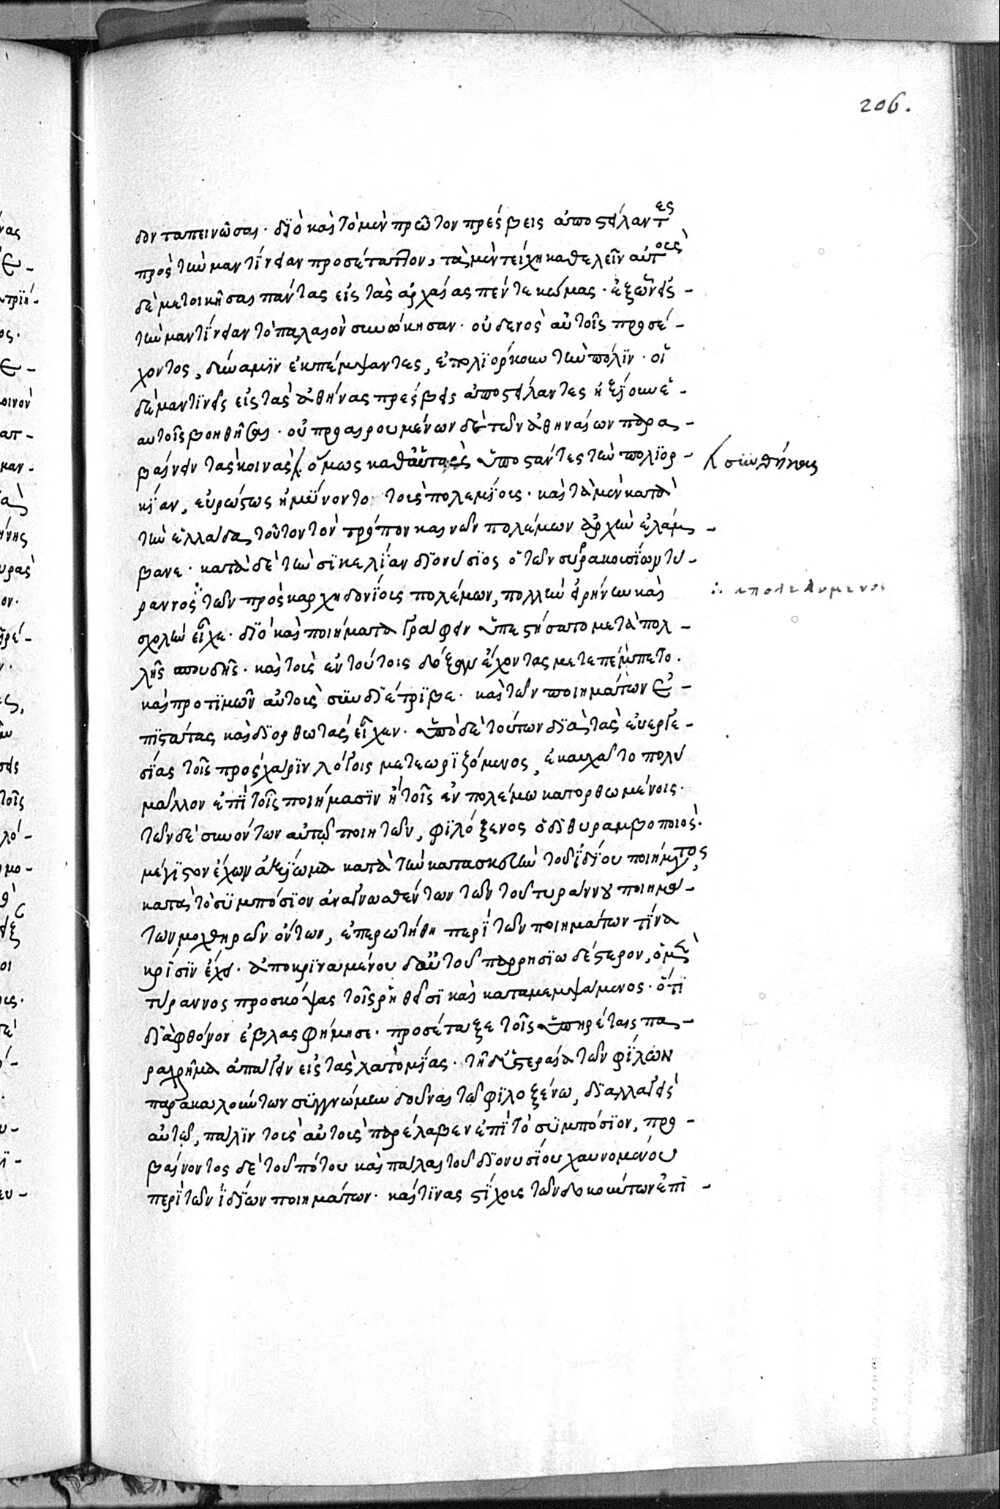 206.
δον ταπεινῶσαι· διὸ καὶ τὸ μὲν πρῶτον πρέσβεις ἀποστείλαντες
πρὸς τὴν μαντίνειαν προσέταττον, τὰ μὲν τείχη καθελεῖν αὐτοὺς
δὲ μετοικῆσαι πάντας εἰς τὰς ἀρχαίας πέντε κώμας· ἐξ ὧν εἰς -
τὴν μαντίνειαν τὸ παλαιὸν συνῴκησαν· οὐδενὸς αὐτοῖς προσέ-
χοντος, δύναμϊν ἐκπέμψαντες, ἐπολϊόρκουν τὴν πόλϊν· οἱ
δὲ μαντινεῖς εἰς τὰς ἀθήνας πρέσβεις ἀποστείλαντες ἠξίουν ἑ-
αυτοῖς βοηθῆσαι· οὐ προαιρουμένων δὲ τῶν ἀθηναίων παρα-
βαίνειν τὰς κοινὰς ὅμως καθ' αὑτοὺς ὑποστάντες τὴν πολϊορ- συνθήκας
κίαν, εὐρώστως ἠμύνοντο τοὺς πολεμίους· καὶ τὰ μὲν κατὰ
τὴν ἑλλάδα τοῦτον τὸν τρόπον καινῶν πολέμων ἀρχὴν ἐλάμ-
βανε· κατὰ δὲ τὴν σϊκελίαν δϊονύσϊος ὁ τῶν συρακουσίων τύ-
ραννος ∴ τῶν πρὸς καρχηδονίους πολέμων, πολλὴν εἰρήνην καὶ ∴ απολελυμενος
σχολὴν εἶχε· διὸ καὶ ποιήματα γράφειν ὑπεστήσατο μετὰ πολ-
λῆς σπουδῆς· καὶ τοὺς ἐν τούτοις δόξαν ἔχοντας μετεπέμπετο·
καὶ προτιμῶν αὐτοὺς συνδϊέτρϊβε· καὶ τῶν ποιημάτων ἐ-
πϊστάτας καὶ δϊορθωτὰς εἶχεν· ὑπὸ δὲ τούτων δϊὰ τὰς εὐεργε-
σίας τοῖς πρὸς χάρϊν λόγοις μετεωριζόμενος, ἐκαυχᾶτο πολὺ
μᾶλλον ἐπὶ τοῖς ποιήμασϊν ἢ τοῖς ἐν πολέμω κατορθωμένοις·
τῶν δὲ συνόντων αὐτῷ ποιητῶν, φϊλόξενος ὁ διθυραμβοποιὸς·
μέγιστον ἔχων ἀξίωμα κατὰ τὴν κατασκευὴν τοῦ ἰδίου ποιήματος,
κατὰ τὸ συμπόσϊον ἀναγνωσθέντων τῶν τοῦ τυράννου ποιημά-
των μοχθηρῶν ὄντων, ἐπερωτήθη περὶ τῶν ποιημάτων τίνα
κρίσϊν ἔχει· ἀποκρϊναμένου δ' αὐτοῦ παρρησϊωδέστερον, ὁ μὲν
τύραννος προσκόψας τοῖς ῥηθεῖσϊ καὶ καταμεμψάμενος· ὅτϊ
δϊὰ φθόνον ἐβλασφήμησε· προσέταξε τοῖς ὑπηρέταις πα-
ραχρῆμα ἀπάγειν εἰς τὰς λατομίας· τῇ δ' ὑστεραία τῶν φίλων
παρακαλούντων συγγνώμην δοῦναι τῷ φϊλοξένω, δϊαλλαγεὶς
αὐτῷ, πάλϊν τοὺς αὐτοὺς παρέλαβεν ἐπὶ τὸ συμπόσϊον, προ-
βαίνοντος δὲ τοῦ πότου καὶ πάλαι τοῦ δϊονυσίου χαυνομένου
περὶ τῶν ἰδίων ποιημάτων· καί τϊνας στίχους τῶν δοκούντων ἐπϊ-